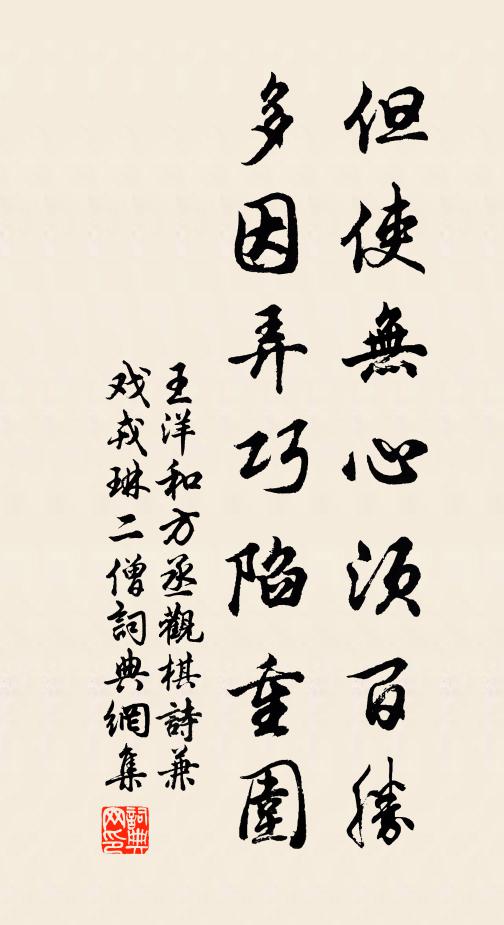 但使無心須百勝
多因弄巧陷重圍
王洋和方丞觀棋詩兼
戏戎琳二僧詞典網集
詞典網印